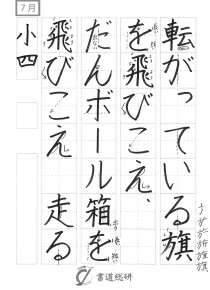 7月
転がっている旗
を飛びこえ、
だんボール箱を
飛びこえ走る
小四
書道総研